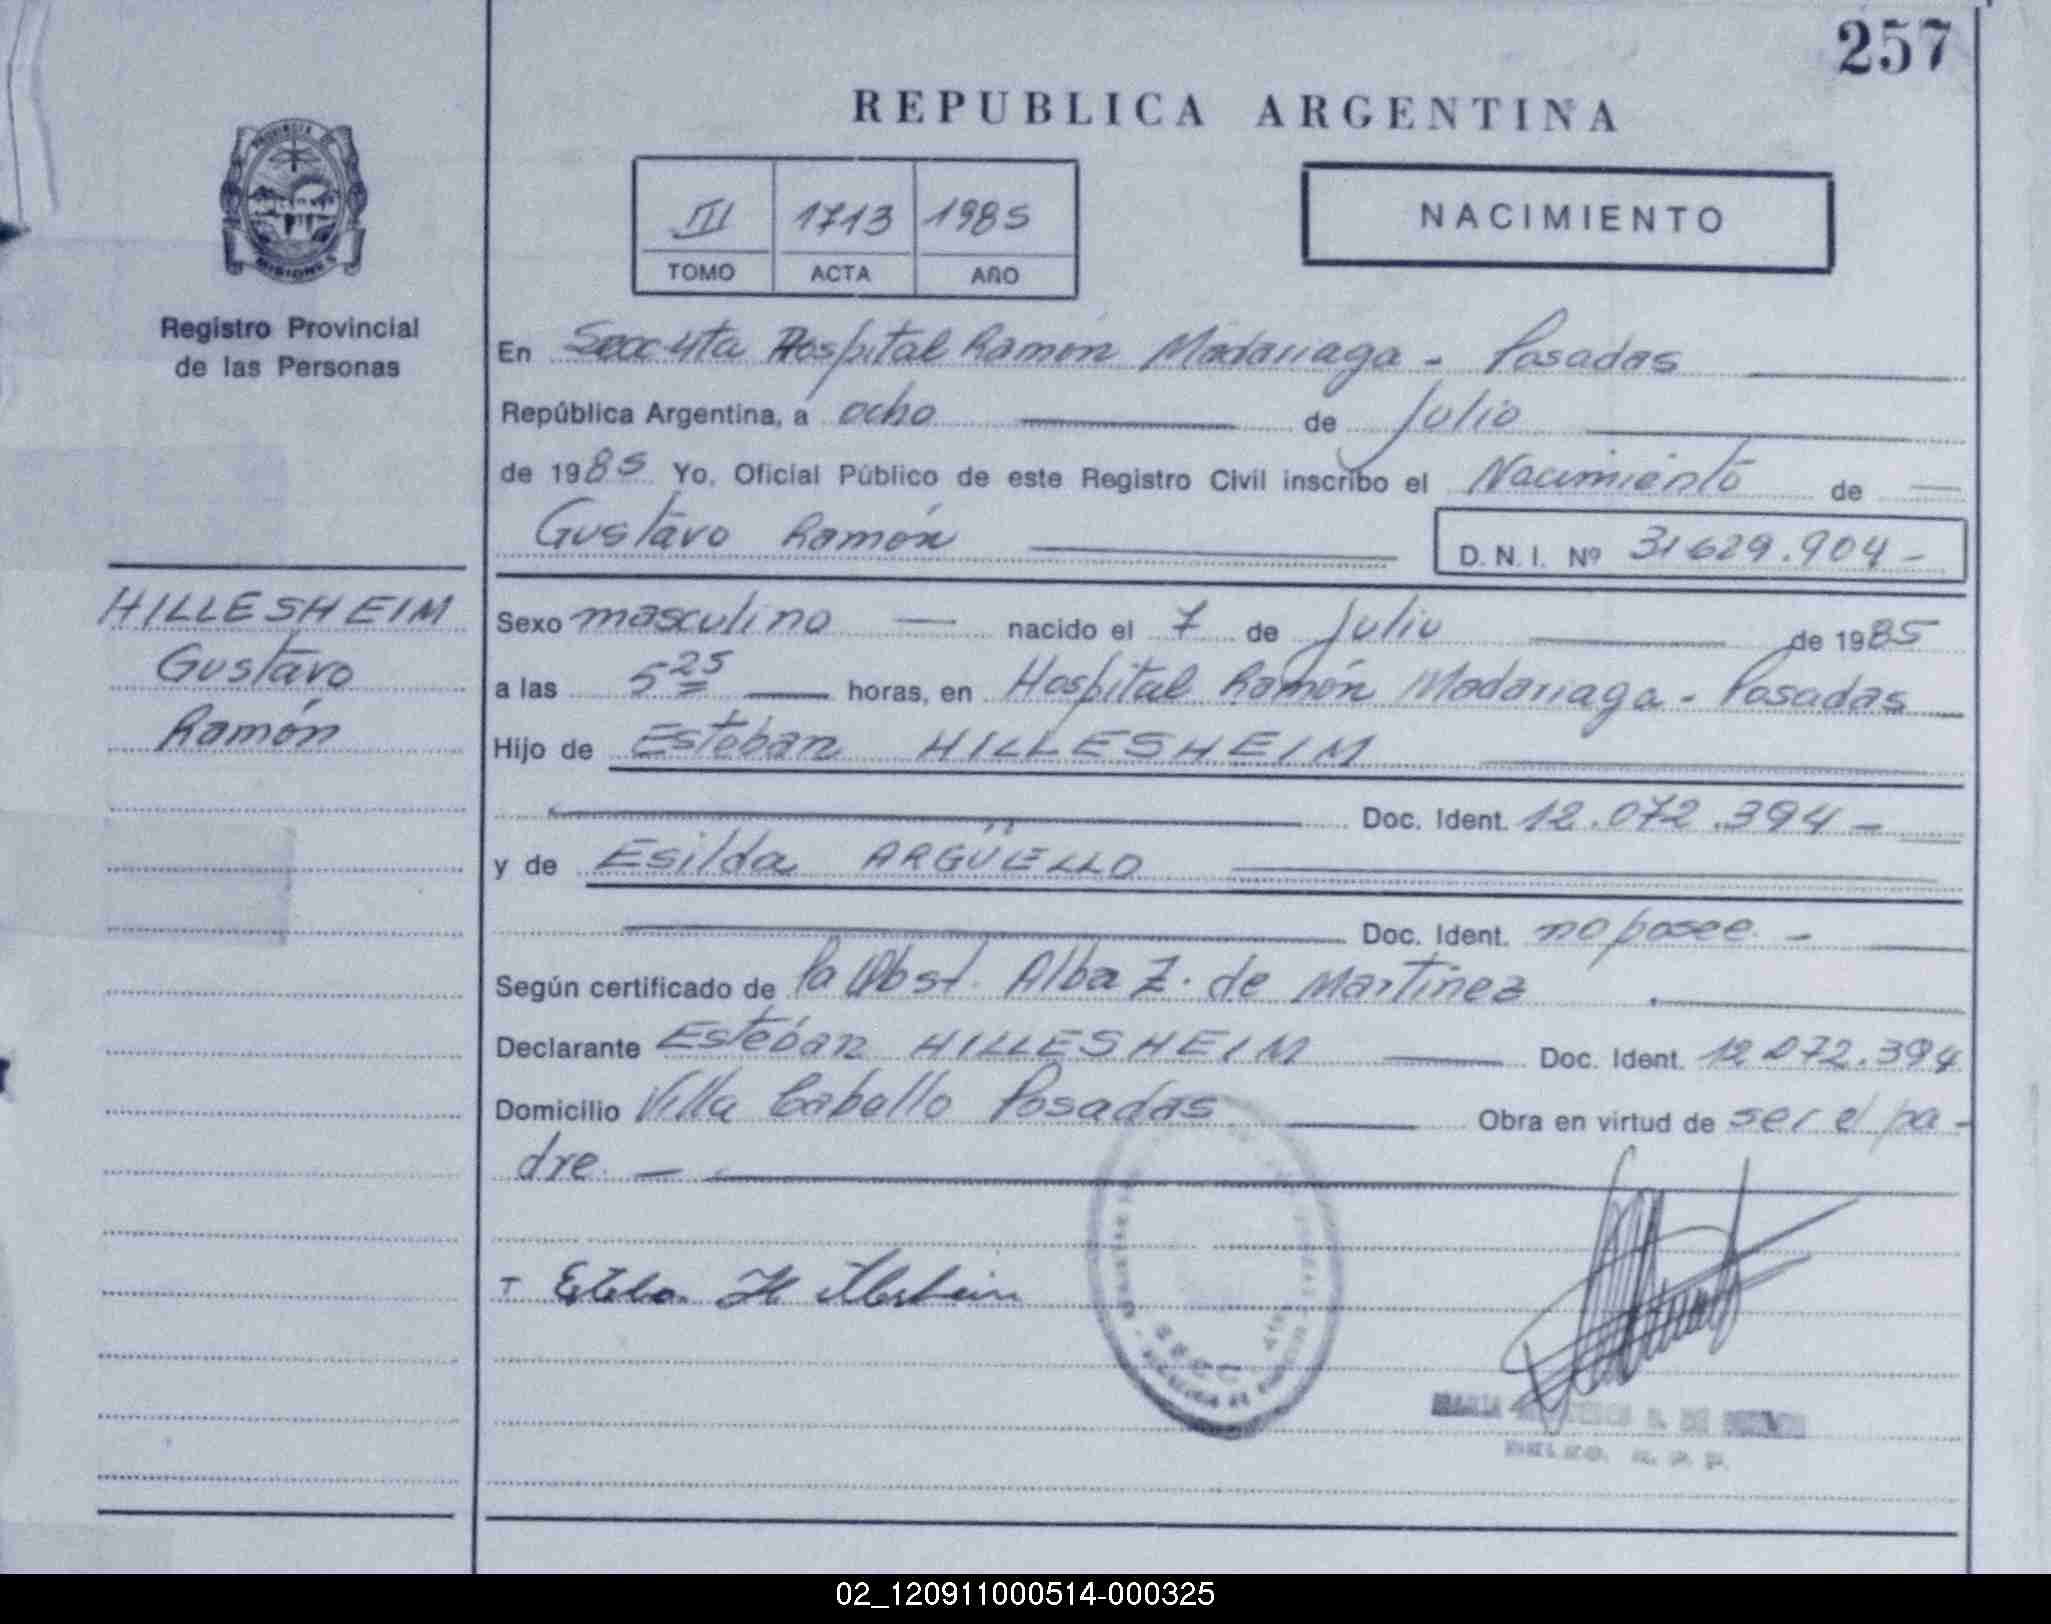 257
REPUBLICA ARGENTINA
PROVINCIA DE
MISIONES
Registro Provincial
de las Personas
III 1713 1985
TOMO ACTA AÑO
NACIMIENTO
En Secc 4ta Hospital Ramón Madariaga - Posadas
República Argentina, a ocho de Julio
de 1985 Yo, Oficial Público de este Registro Civil inscribo el Nacimiento de
Gustavo Ramón D.N.I. Nº 31629.904-
HILLESHEIM
Gustavo
Ramón
Sexo masculino nacido el 7 de Julio de 1985
a las 5 25 horas, en Hospital Ramón Madariaga - Posadas
Hijo de Esteban HILLESHEIM
Doc. Ident. 12.072.394-
y de Esilda ARGÜELLO
Doc. Ident. no posee -
Según certificado de la Obst. Alba Z. de Martinez
Declarante Esteban HILLESHEIM Doc. Ident. 12 072.394
Domicilio Villa Caballo Posadas Obra en virtud de ser el pa-
dre. -
Esteban Hillesheim
MARIA
02_120911000514-000325